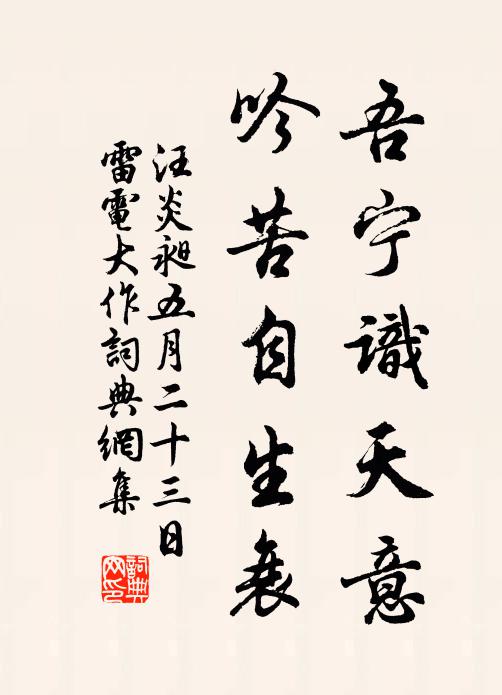 吾宁識天意
吟苦自生衰
汪炎昶五月二十三日
雷電大作詞典網集
詞典
网印